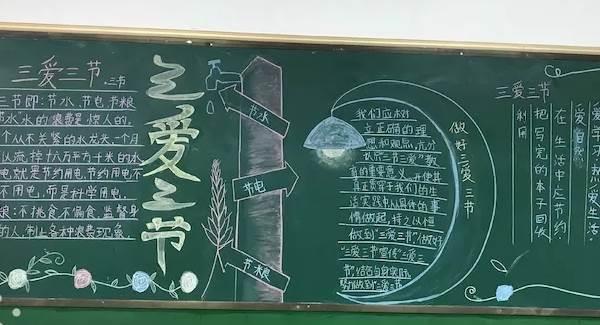 三爱三节
三节
三节即:节水、节电、节粮
节水:水的浪费是惊人的。
个从不关紧的水龙头,一个月
以流掉十八万平方千米的水
电,就是节约用电,节约用电不
不用电,而是科学用电。
粮:不挑食不偏食,监督身
的人,制止各种浪费现象
三爱三节
节水
节电
节粮
我们应树
立正确的理
想和观念,充分
认识"三节三爱"教
真的重要意义,并使其
真正贯穿于我们的生
活实践中,从具体的事
情做起,持之以恒
做到"三爱三节"做好
"三爱三节宣传"三爱三
节",结合自身实际
努力做到"三爱三节
做好三爱三节
三爱三节
爱学习,热爱生活。
爱自然
在生活中应节约,
把写完的本子回收
利用